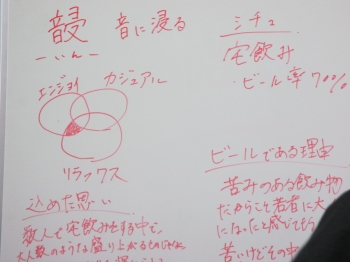 音に浸る
ーいんー
エンジョイ カジュアル
リラックス
込めた思い
数人で宅飲みをする中で、
大人数のような盛り上がるものじゃ
シチュ
宅飲み
・ビール率70%
ビールである理由
苦みのある飲み物
だからこそ若者に大
になったと感じてもら
苦いけどその中